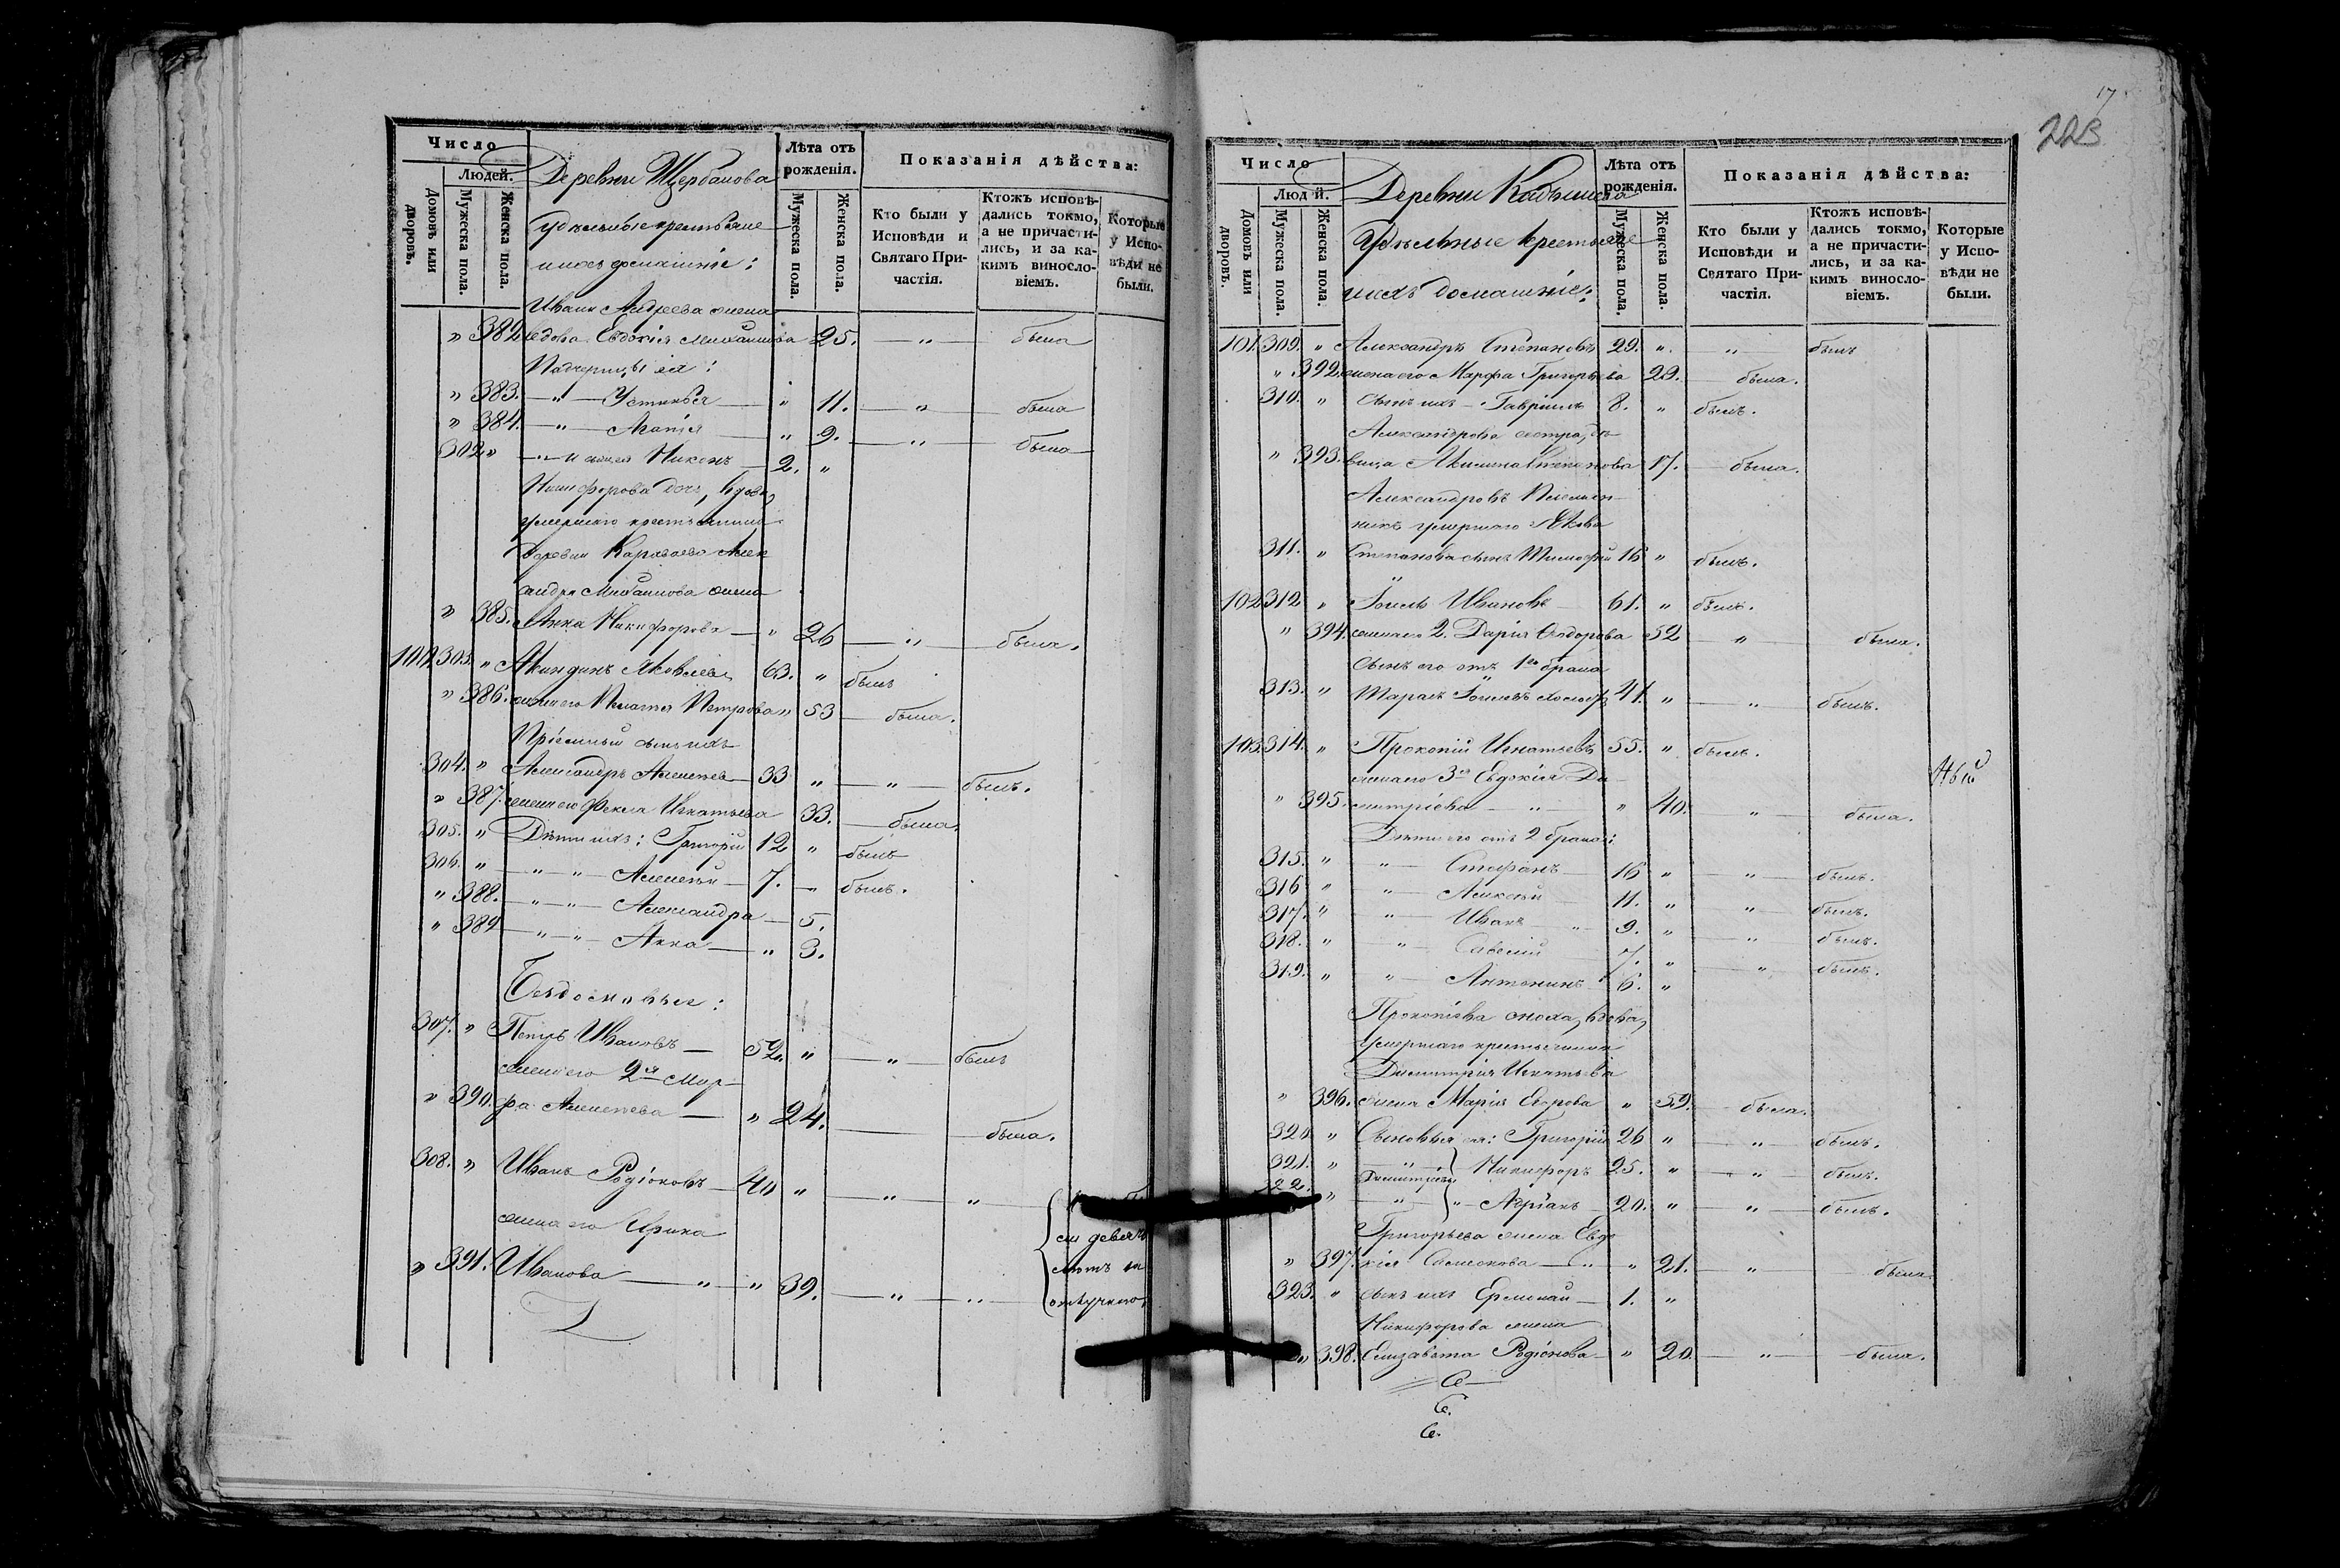 Число
Людей.
Домовъ или дворовъ.
Мужеска пола.
Женска пола.
Деревни Щербакова
удѣльные крестьяне
ихъ домашніе:
Лѣта отъ рожденія.
Мужеска пола.
Женска пола.
Показанія дѣйства:
Кто были у Исповѣди и Святаго Причастія.
Ктожъ исповѣдались токмо, а не причастились, и за какимъ винословіемъ.
Которые у Исповѣди не были.
Ивана Андреева жена
" 382 вдова Евдокія Михаилова 25. " была
Падчерицы ея:
" 383. " Устинья " 11. " была
" 384. " Агапія " 9. " была
302 " " Никонъ 2. "
Никифорова дочь, вдова,
умершаго крестьянина
деревни Караваева Алек
сандра Михаилова жена
" 385. Анна Никифорова " 26 " была.
100 303. " Акиндинъ Яковлевъ 63. " былъ
" 386. жена его Пелагея Петрова " 53 была.
Пріемный сынъ ихъ
304. " Александръ Алексѣевъ 33 " " былъ.
" 387. жена его Фекла Игнатьева 33. была.
305. " Дѣти ихъ: Григорій 12 " былъ
306. " " " Алексѣй 7. " былъ.
" 388. " " Александра 5.
" 389 " " Анна " 3.
307. " Петръ Ивановъ 52. " " былъ
жена его 2я Мар
" 390. фа Алексѣева " 24. была.
308. " Иванъ Родіоновъ 40 " " "
жена его Ирина
" 391. Иванова " " 39. " "
17
223
Число
Люд й.
Домовъ или дворовъ.
Мужеска пола.
Женска пола.
Деревни
Удѣльные крестьяне
ихъ домашніе:
Лѣта отъ рожденія.
Мужеска пола.
Женска пола.
Показанія дѣйства:
Кто были у Исповѣди и Святаго Причастія.
Ктожъ исповѣдались токмо, а не причастились, и за какимъ винословіемъ.
Которые у Исповѣди не были.
101. 309. " Александръ Степановъ 29. " " былъ
" 392. жена его Марфа Григорьева 29. была.
310. " сынъ ихъ Гавріилъ 8. " былъ.
Александрова сестра, дѣ
" 393. вица Акилина Степанова 17. была.
Александровъ Племян
никъ умершаго Якова
311. " Степанова сынъ Тимофей 16 " былъ.
102 312 " Іоиль Ивановъ 61. " былъ.
" 394. жена его 2. Дарія Ѳедорова 52 " была.
Сынъ его отъ 1го брака
313. " Тарасъ Іоилевъ 41. " " былъ.
103. 314. " Прокопій Игнатьевъ 55. " былъ.
жена его 3я Евдокія Ди
" 395. митріева " " 40. " была.
Дѣти его отъ 2 брака:
315. " " Стефанъ 16 " " былъ.
316 " " Алексѣй 11. " " былъ.
317. " " Иванъ " 9. " " былъ.
318. " " Савелій 7. " " былъ.
319. " " Антонинъ 6. "
Прокопіева сноха, вдова,
умершаго крестьянина
Димитрія Игнатьева
" 396. жена Марія Егорова " 59. была.
320 " Сыновья ея: Григорій 26 " " былъ.
321. " " Никифоръ 25. " " былъ.
Димитріевы
322. " " " Адріанъ 20. " " былъ.
Григорьева жена Евдо
" 397. кія Симеонова " " 21. " была
323. " сынъ ихъ Ермолай 1. "
Никифорова жена
" 398. Елизавета Родіонова " 20. " была.